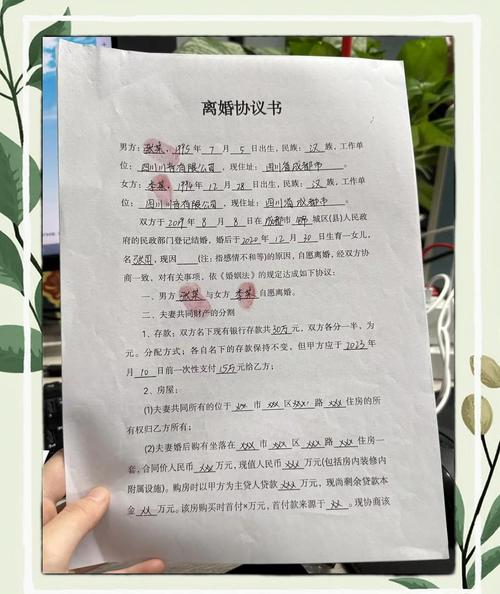 离婚协议书
男方：张某，1995年 7 月 5 日出生，民族：汉 族，工作单
位：四川川音有限公司，现住址：四川省成都市。
女方：李某，1994年 12 月 28 日出生，民族：汉 族，工作单
位：四川川音有限公司，现住址：四川省成都市。
双方于 2019 年 8 月 8 日在 成都 市 锦 城区(县)人民政
府的民政部门登记结婚，婚后于 2020 年 12 月 30 日生育一女儿，
名 张 ，现因 (注：指感情不和等)的原因，自愿离婚，经双方协
商一致，对有关事项，依《婚姻法》的规定达成如下协议：
一、男方 张某 与女方 李某 自愿离婚。
二、夫妻共同财产的分割
1、存款：双方名下现有银行存款共30万元，双方各分一半，为
元。分配方式：各自名下的存款保持不变，但甲方应于 2023 年
月 10 日前一次性支付 15万 元给乙方；
2、房屋：
(1)夫妻共同所有的位于 xx 市 xxx 区 xxx 路 xxx 住房的所
有权归乙方所有；
(2)夫妻婚后购有坐落在 xxx 市 xxx 区 xxx 路 xxx 住房一
套，合同价人民币 xxx 万元，现值人民币 xxx 万元(包括房内装修内
附属设施)。购房时以甲方为主贷人贷款 xxx 万元，现尚剩余贷款本
金 xx 万元。该房购买时首付×万元，首付款来源于 xx 。现协商该